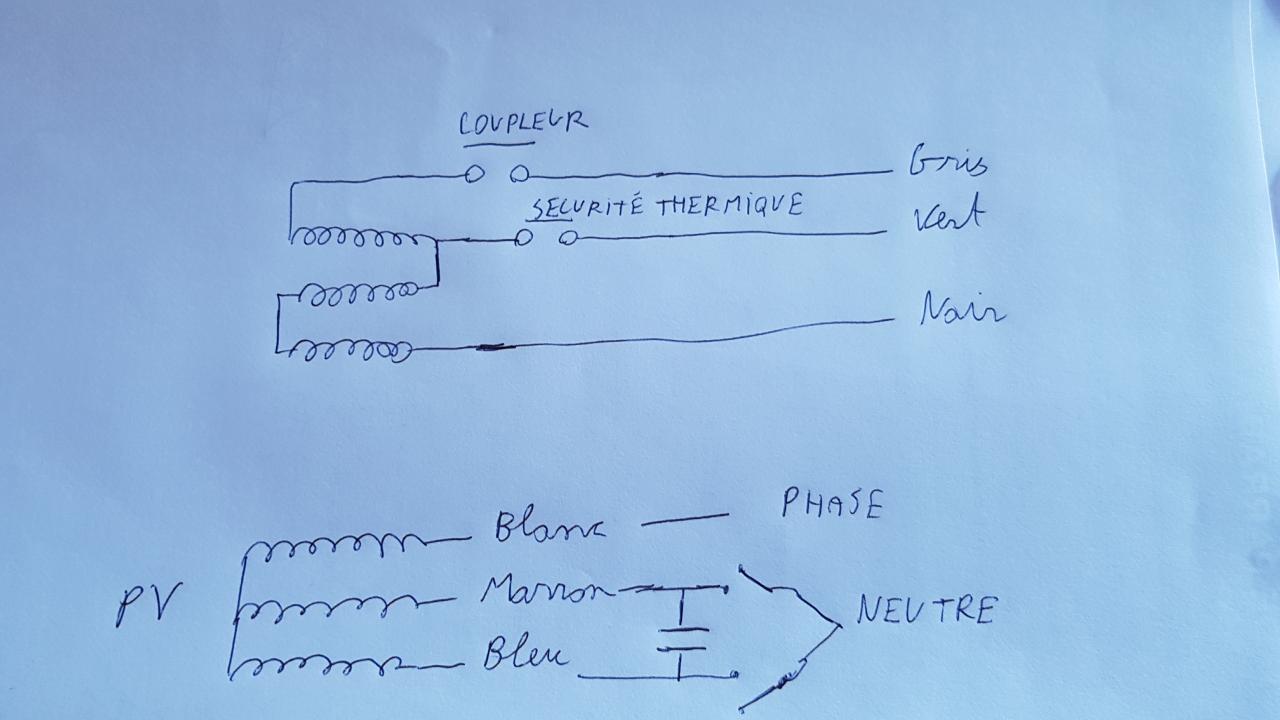 COUPLEUR
Gris
SECURITÉ THERMIQUE
Vert
Noir
PHASE
Blanc
PV
Marron
NEUTRE
Bleu